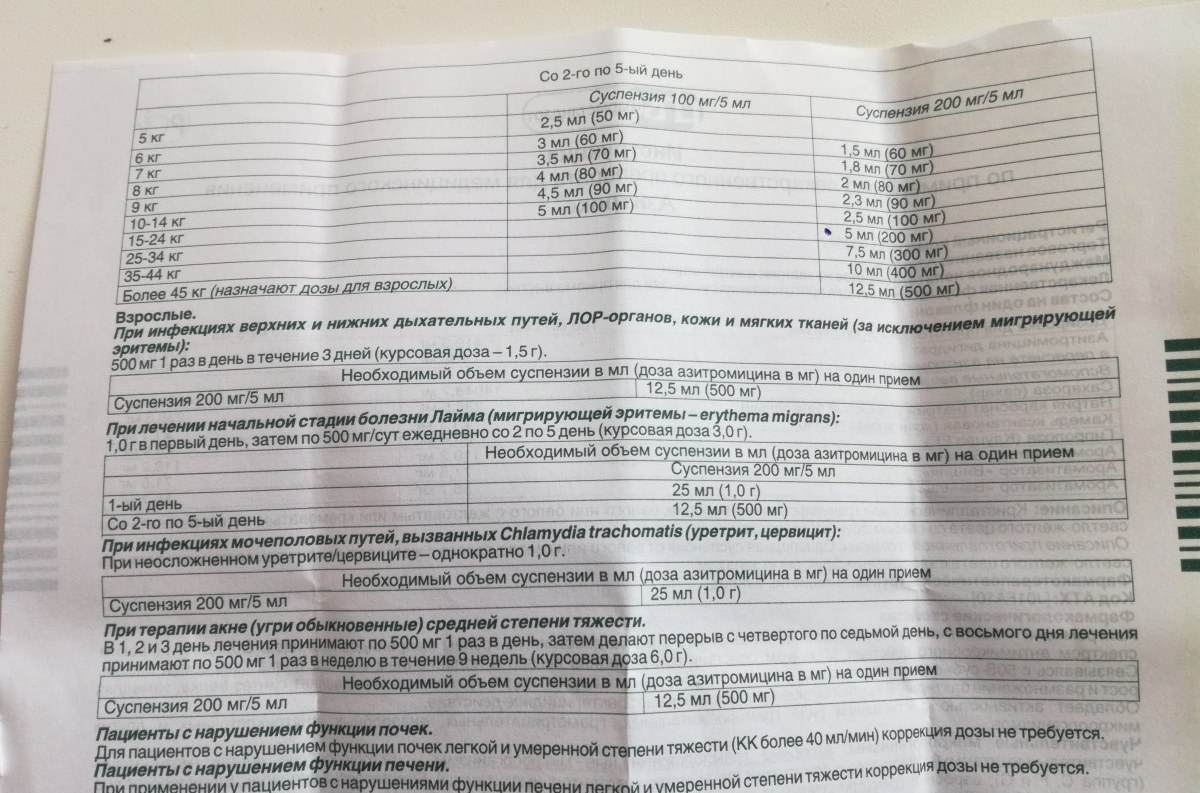 Со 2-го по 5-ый день
Суспензия 100 мг/5 мл Суспензия 200 мг/5 мл
5 кг 2,5 мл (50 мг)
6 кг 3 мл (60 мг) 1,5 мл (60 мг)
7 кг 3,5 мл (70 мг) 1,8 мл (70 мг)
8 кг 4 мл (80 мг) 2 мл (80 мг)
9 кг 4,5 мл (90 мг) 2,3 мл (90 мг)
10-14 кг 5 мл (100 мг) 2,5 мл (100 мг)
15-24 кг 5 мл (200 мг)
25-34 кг 7,5 мл (300 мг)
35-44 кг 10 мл (400 мг)
Более 45 кг (назначают дозы для взрослых) 12,5 мл (500 мг)
Взрослые.
При инфекциях верхних и нижних дыхательных путей, ЛОР-органов, кожи и мягких тканей (за исключением мигрирующей
эритемы):
500 мг 1 раз в день в течение 3 дней (курсовая доза – 1,5 г).
Необходимый объем суспензии в мл (доза азитромицина в мг) на один прием
Суспензия 200 мг/5 мл 12,5 мл (500 мг)
При лечении начальной стадии болезни Лайма (мигрирующей эритемы – erythema migrans):
1,0 г в первый день, затем по 500 мг/сут ежедневно со 2 по 5 день (курсовая доза 3,0 г).
Необходимый объем суспензии в мл (доза азитромицина в мг) на один прием
Суспензия 200 мг/5 мл
1-ый день 25 мл (1,0 г)
Со 2-го по 5-ый день 12,5 мл (500 мг)
При инфекциях мочеполовых путей, вызванных Chlamydia trachomatis (уретрит, цервицит):
При неосложненном уретрите/цервиците – однократно 1,0 г.
Необходимый объем суспензии в мл (доза азитромицина в мг) на один прием
Суспензия 200 мг/5 мл 25 мл (1,0 г)
При терапии акне (угри обыкновенные) средней степени тяжести.
В 1, 2 и 3 день лечения принимают по 500 мг 1 раз в день, затем делают перерыв с четвертого по седьмой день, с восьмого дня лечения
принимают по 500 мг 1 раз в неделю в течение 9 недель (курсовая доза 6,0 г).
Необходимый объем суспензии в мл (доза азитромицина в мг) на один прием
Суспензия 200 мг/5 мл 12,5 мл (500 мг)
Пациенты с нарушением функции почек.
Для пациентов с нарушением функции почек легкой и умеренной степени тяжести (КК более 40 мл/мин) коррекция дозы не требуется.
Пациенты с нарушением функции печени.
При применении у пациентов с нарушениями функции печени легкой и умеренной степени тяжести коррекция дозы не требуется.